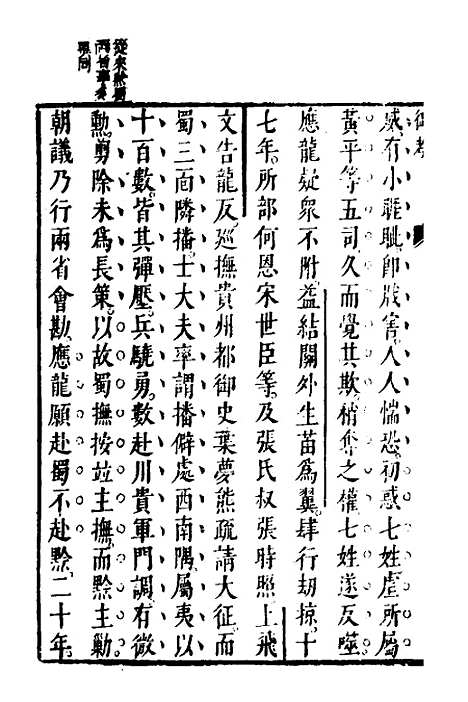 威有小睚眦即戕害人人惴恐初惑七姓虐所屬
黃平等五司久而覺其欺稍奪之權七姓遂反噬
應龍疑衆不附益結關外生苗爲翼肆行刼掠十
七年所部何恩宋世臣等及張氏叔張時照上飛
文告龍反巡撫貴州都御史葉夢熊疏請大征而
蜀三面隣播士大夫率謂播僻處西南隅屬夷以
十百數皆其彈壓兵驍勇數赴川貴軍門調有微
勳剪除未爲長策以故蜀撫按竝主撫而黔主勦
朝議乃行兩省會勘應龍願赴蜀不赴黔二十年
從來黔蜀